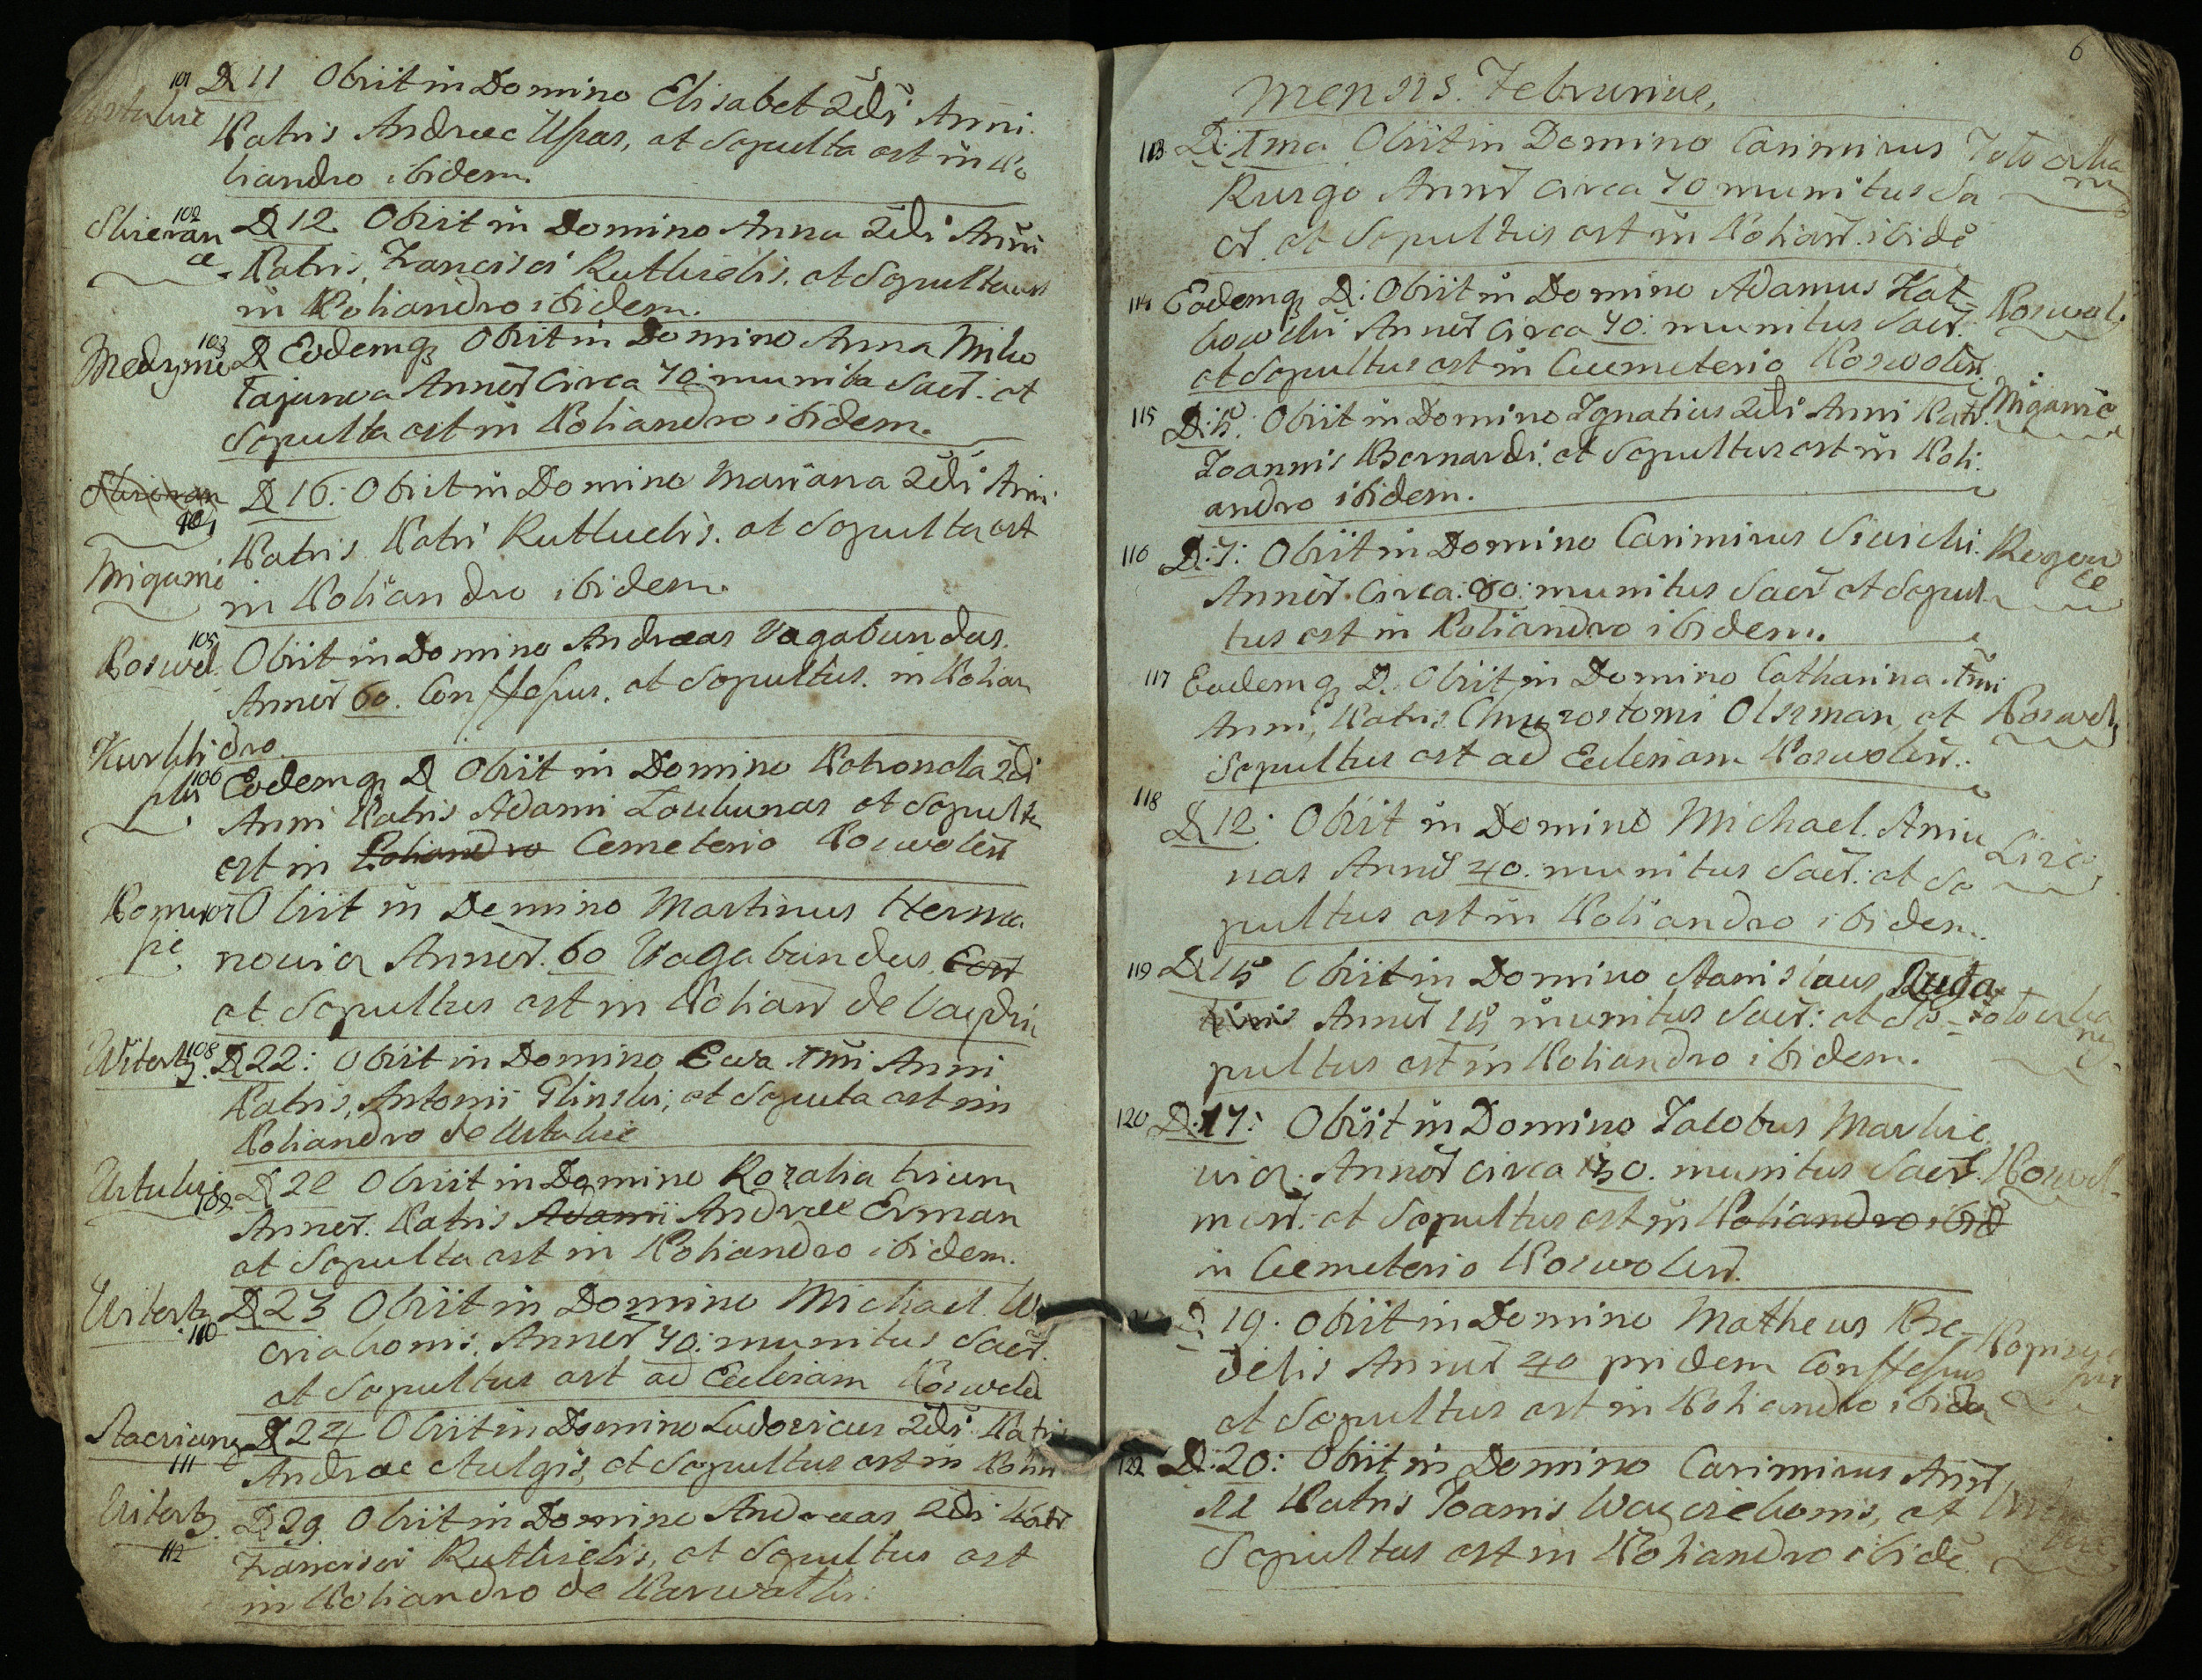 101 D 11 Obiit in Domino Elisabet 2di Anni.
Patris Andreae Uspas, et Sepulta est in Po
liandro ibidem.
102 D 12 Obiit in Domino Anna 2di Anni
Patris, Francisci Rutkielis. et Sepulta est
in Poliandro ibidem.
Medyni 103 D Eodemq Obiit in Domino Anna Miko
Tajunea Annor Circa 70: munita Sacr: et
Sepulta est in Poliandro ibidem.
104 D 16: Obiit in Domino Mariana 2di Anni
Patris Petri Rutkielis. et Sepulta est
Migunie
in Poliandro ibidem.
Poswol. 105 Obiit in Domino Andreas Vagabundus.
Annor 60. Conffessus. et Sepultus. in Polian
dro.
106 Eodemq D Obiit in Domino Petronela 2di
Anni Patris Adami Loukunas et Sepulta
est in Poliandro Cemeterio Poswolen
Obiit in Domino Martinus Herma
nowicz Annor. 60 Vagabundus. Con
et Sepultus est in Polian de
108 D 22: Obiit in Domino Ewa 1mi Anni
Patris, Antonii Glinski, et Sepulta est in
Poliandro de Ustukie
Ustukie 109 D 22 Obiit in Domino Rozalia trium
Annor. Patris Adami Andreae Erman
et Sepulta est in Poliandro ibidem.
110 D 23 Obiit in Domino Michael
Annor 70: munitus Sacr.
et Sepultus est ad Eclesiam Poswolen
111 D 24 Obiit in Domino Ludovicus 2di Patris
Andreae Aulgis, et Sepultus est in Polian
112 D 29 Obiit in Domino Andreas 2di Patr
Francisci Rutkielis, et Sepultus est
in Poliandro de
6
Mensis. Februrius,
113 D: 1ma Obiit in Domino Casimirus
Kurgo Annor circa 70 munitus Sa
cr. et Sepultus est in Polian. ibide
114 Eodemq D: Obiit in Domino Adamus Kat- Poswol.
kowski Annor circa 70: munitus Sacr.
et Sepultus est in Cemeterio Poswolen.
115 D: 5. Obiit in Domino Ignatius 2di Anni Patr. Migunie
Joannis Bernardi. et Sepultus est in Poli
andro ibidem.
116 D: 7: Obiit in Domino Casimirus Siwicki.
Annor. Circa: 80: munitus Sacr et Sepul
tus est in Poliandro ibidem.
117 Eodemq D. Obiit in Domino Catharina 1mi
Anni, Patris Chryzostomi Olszman, et Poswol.
Sepultus est ad Eclesiam Poswolen.
118 D 12: Obiit in Domino Michael. Aniu
nas Annor 40. munitus Sacr: et Se
pultus est in Poliandro ibidem.
119 D 15 Obiit in Domino Stanislaus
Annor 15 munitus Sacr: et Se-
pultus est in Poliandro ibidem.
120 D: 17: Obiit in Domino Jacobus Markie
wicz. Annor circa 50. munitus Sacr Poswol.
men: et Sepultus est in Poliandro ibid
in Cemeterio Poswolen.
D 19. Obiit in Domino Matheus Be-
delis Annor 40 pridem Conffessus
et Sepultus est in Poliandro ibide
122 D: 20: Obiit in Domino Casimirus Annor
11 Patris Joanis et
Sepultus est in Poliandro ibide